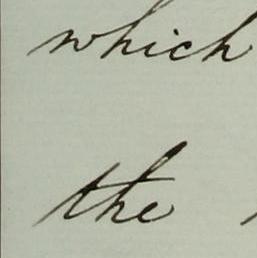 which
the